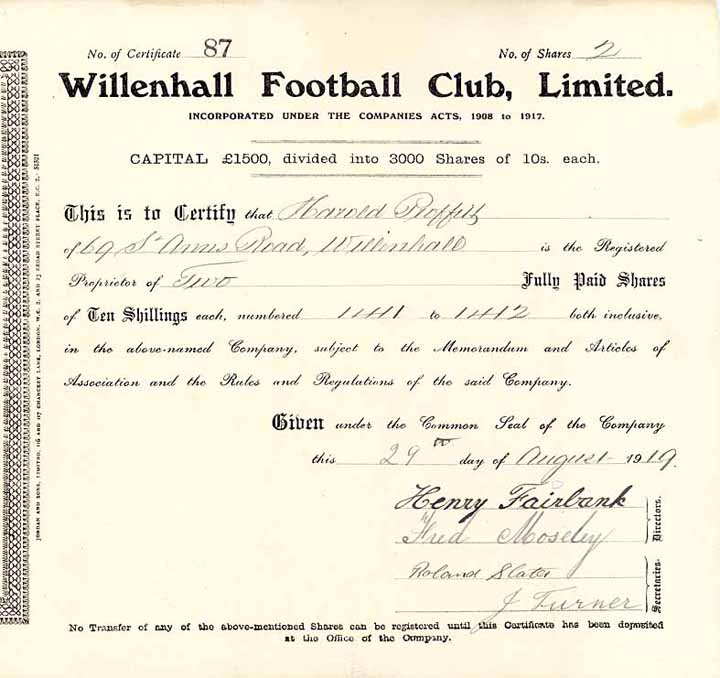 No. of Certificate 87 No. of Shares 2
Willenhall Football Club, Limited.
INCORPORATED UNDER THE COMPANIES ACTS, 1908 to 1917.
CAPITAL £1500, divided into 3000 Shares of 10s. each.
This is to Certify that Harold Proffitt
of 69 St Annes Road, Willenhall is the Registered
Proprietor of Two Fully Paid Shares
of Ten Shillings each, numbered 1411 to 1412 both inclusive,
in the above-named Company, subject to the Memorandum and Articles of
Association and the Rules and Regulations of the said Company.
Given under the Common Seal of the Company
this 29th day of August 1919.
Henry Fairbank
Fred Moseley
Directors.
Roland Slater
J Turner
Secretaries.
No Transfer of any of the above-mentioned Shares can be registered until this Certificate has been deposited
at the Office of the Company.
JORDAN AND SONS, LIMITED, 116 AND 117 CHANCERY LANE, LONDON, W.C. 2, AND 13 BROAD STREET PLACE, E.C. 2.